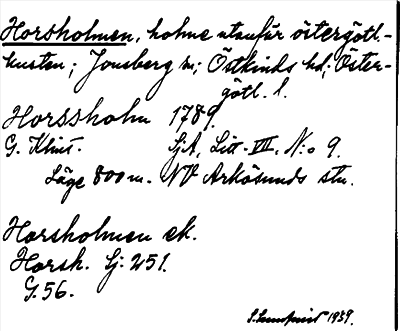 Horsholmen, holme utanför östergötl.-
kusten; Jonsberg sn; Östkinds hd; Öster-
götl. l.
Horssholm 1789.
G. Klint. Sj:A, Litt. VII, N:o 9.
Läge 800 m. NV Arkösunds stn.
Horsholmen ek.
Horsh. Sj: 251.
G. 56.
1939.